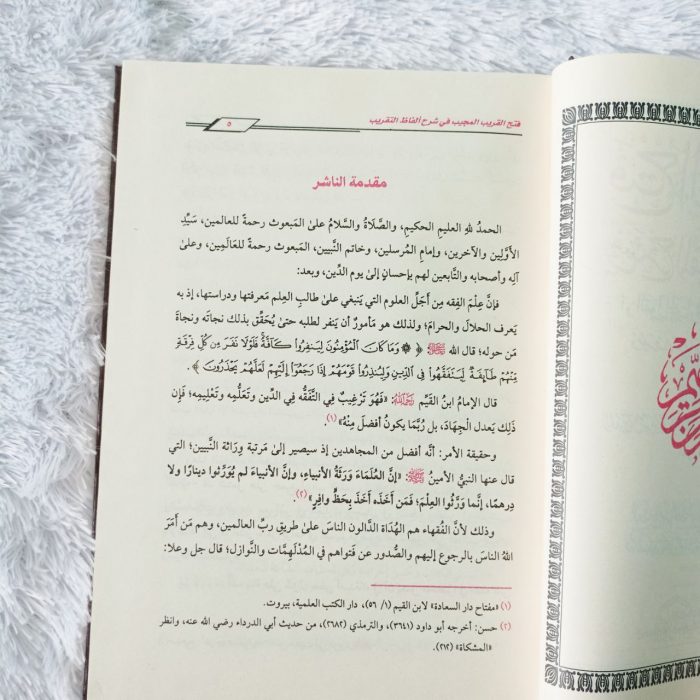 فتح القريب المجيب في شرح ألفاظ التقريب
٥
مقدمة الناشر
الحمدُ للهِ العليمِ الحكيمِ، والصَّلاةُ والسَّلامُ علىٰ المَبعوث رحمةً للعالمين، سَيِّدِ
الأوَّلِين والآخرين، وإمامِ المُرسلين، وخاتم النَّبيين، المَبعوث رحمةً للعَالَمِين، وعلىٰ
آلِه وأصحابه والتَّابعين لهم بإحسانٍ إلىٰ يوم الدِّين، وبعد:
فإنَّ عِلمَ الفِقه مِن أجَلِّ العلوم التي يَنبغي علىٰ طالبِ العِلم مَعرفتها ودراستها، إذ به
يَعرف الحلالَ والحرامَ؛ ولذلك هو مَأمورٌ أن يَنفر لطلبه حتىٰ يُحَقِّق بذلك نجاتَه ونجاةَ
مَن حوله؛ قال الله ﷻ: ﴿ ۞ وَمَا كَانَ ٱلْمُؤْمِنُونَ لِيَنفِرُوا۟ كَآفَّةً ۚ فَلَوْلَا نَفَرَ مِن كُلِّ فِرْقَةٍ
مِّنْهُمْ طَآئِفَةٌ لِّيَتَفَقَّهُوا۟ فِى ٱلدِّينِ وَلِيُنذِرُوا۟ قَوْمَهُمْ إِذَا رَجَعُوٓا۟ إِلَيْهِمْ لَعَلَّهُمْ يَحْذَرُونَ ﴾.
قال الإمامُ ابنُ القَيِّم رَحِمَهُ ٱللَّهُ: «فَهُوَ تَرْغِيبٌ فِي التَّفَقُّه فِي الدِّين وتَعَلُّمِه وتَعْلِيمِه؛ فَإِن
ذَلِك يَعدل الْجِهَاد، بل رُبَّمَا يكونُ أفضلَ مِنْهُ»(١).
وحقيقة الأمر: أنَّه أفضل من المجاهدين إذ سيصير إلىٰ مَرتبة وِرَاثة النَّبيين؛ التي
قال عنها النبيُّ الأمينُ ﷺ: «إنَّ العُلَمَاءَ وَرَثَةُ الأنبياءِ، وإنَّ الأنبياءَ لم يُوَرِّثوا دينارًا ولا
دِرهمًا، إنَّما وَرَّثُوا العِلمَ؛ فمَن أخَذَه أخَذَ بِحَظٍّ وافِرٍ»(٢).
وذلك لأنَّ الفُقهاء هم الهُدَاة الدَّالون الناسَ علىٰ طريقِ ربِّ العالمين، وهم مَن أمَرَ
اللهُ الناسَ بالرجوع إليهم والصُّدور عن فتواهم في المُدْلَهِمَّات والنَّوازل؛ قال جل وعلا:
(١) «مفتاح دار السعادة» لابن القيم (١/ ٥٦)، دار الكتب العلمية، بيروت.
(٢) حسن: أخرجه أبو داود (٣٦٤١)، والترمذي (٢٦٨٢)، من حديث أبي الدرداء رضي الله عنه، وانظر
«المشكاة» (٢١٢).